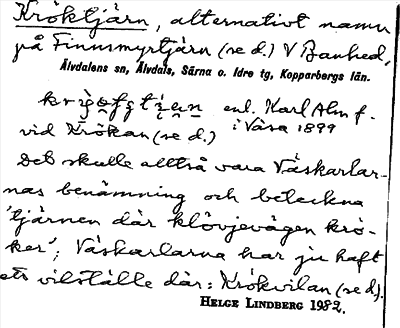 Króktjärn, alternativt namn
på Finnmyrtjärn (se d.) V Banhed,
Älvdalens sn, Älvdals, Särna o. Idre tg, Kopparbergs län.
enl. Karl Alm f.
vid Krókan (se d.) i Våsa 1899
Det skulle alltså vara Våskarlar-
nas benämning och beteckna
'tjärnen där klövjevägen krö-
ker'; Våskarlarna har ju haft
ett vilställe där: Krókvilan (se d.).
HELGE LINDBERG 1982.